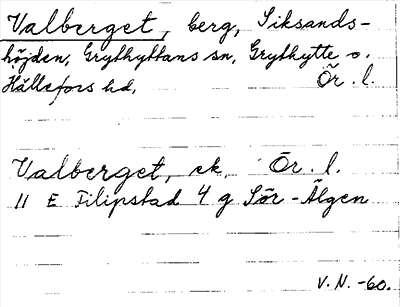 Valberget, berg, Siksands-
höjden, Grythyttans sn, Grythytte o.
Hällefors hd, Ör. l.
Valberget, ek. Ör. l.
11 E Filipstad 4 g Sör-Älgen
V. N. -60.